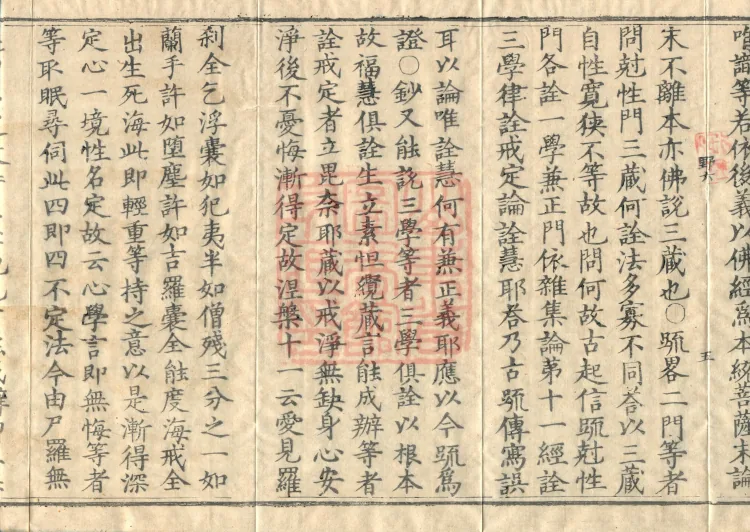 唯識等若依後義以佛經爲本統菩薩末論
末不離本亦佛說三蔵也○䟽畧二門等者
問尅性門三蔵何詮法多寡不同荅以三蔵
自性寬狹不等故也問何故古起信䟽尅性
門各詮一學兼正門依雜集論苐十一經詮
三學律詮戒定論詮慧耶荅乃古䟽傳寫誤
耳以論唯詮慧何有兼正義耶應以今䟽爲
證○鈔又能詮三學等者三學俱詮以根本
故福慧俱詮生立素怛纜蔵言能成辦等者
詮戒定者立毘奈耶蔵以戒淨無缺身心安
淨後不憂悔漸得定故涅槃十一云愛見羅
剎全乞浮囊如犯夷半如僧殘三分之一如
蘭手許如墮塵許如吉羅囊全能度海戒全
出生死海此即輕重等持之意以是漸得深
定心一境性名定故云心學言即無悔等者
等取眠尋伺此四即四不定法今由尸羅無
野六
五